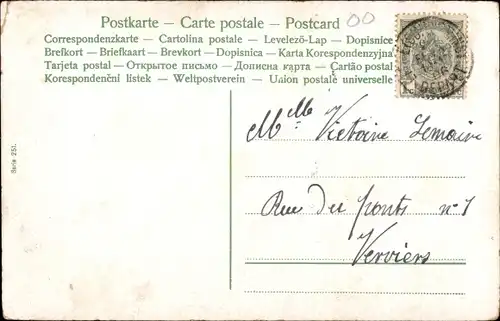 Postkarte – Carte postale – Postcard
Correspondenzkarte – Cartolina postale – Levelező-Lap – Dopisnice
Brefkort – Briefkaart – Brevkort – Dopisnica – Karta Korespondenzyjna
Tarjeta postal – Открытое письмо – Дописна карта – Cartão postal
Korespondenční lístek – Weltpostverein – Union postale universelle
00
Mme Victoire Lemaire
Rue du ponts nº 1
Verviers
Serie 251.